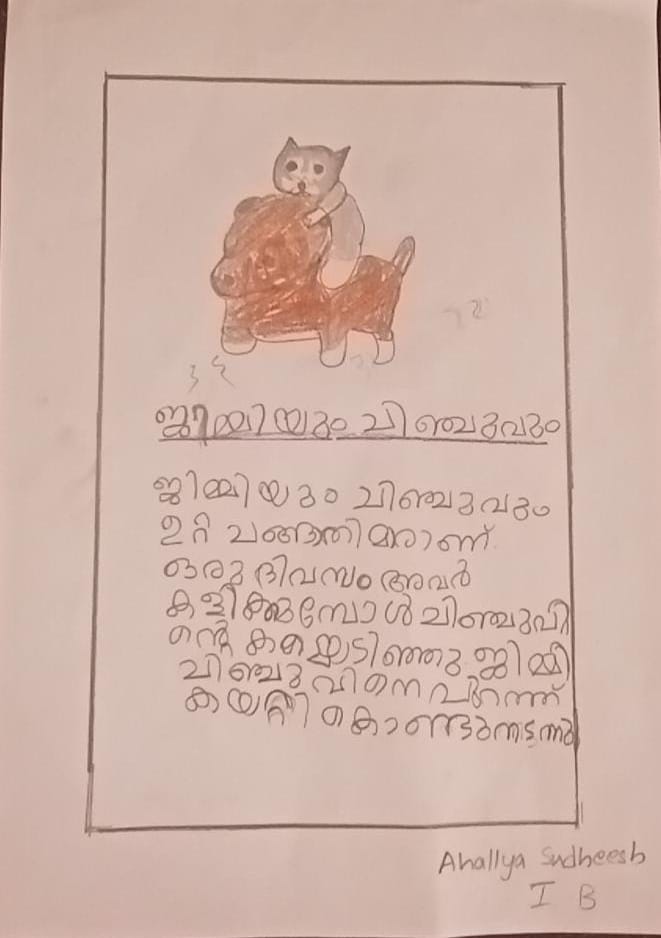 ജിമ്മിയും ചിഞ്ചുവും
ജിമ്മിയും ചിഞ്ചുവും
ഉറ്റ ചങ്ങാതിമാരാണ്.
ഒരു ദിവസം അവർ
കളിക്കുമ്പോൾ ചിഞ്ചുവി
ന്റെ കൈയൊടിഞ്ഞു. ജിമ്മി
ചിഞ്ചുവിനെ പുറത്ത്
കയറ്റി കൊണ്ടുനടന്നു
Ahallya Sudheesh
I B